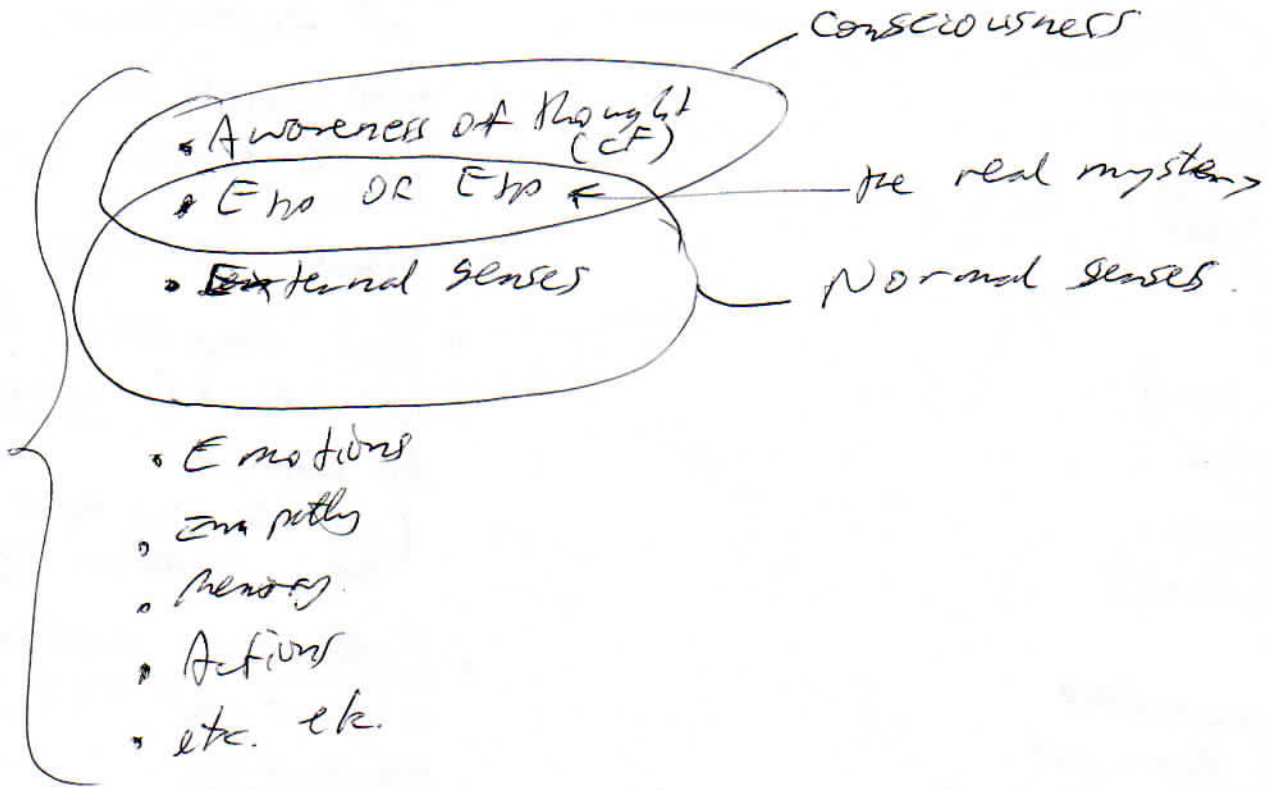 Consciousness
• Awareness of thought
(CF)
• Exp OR Exp
the real mystery
• External senses
Normal senses.
• Emotions
• Empathy
• Memory.
• Actions
• etc. etc.